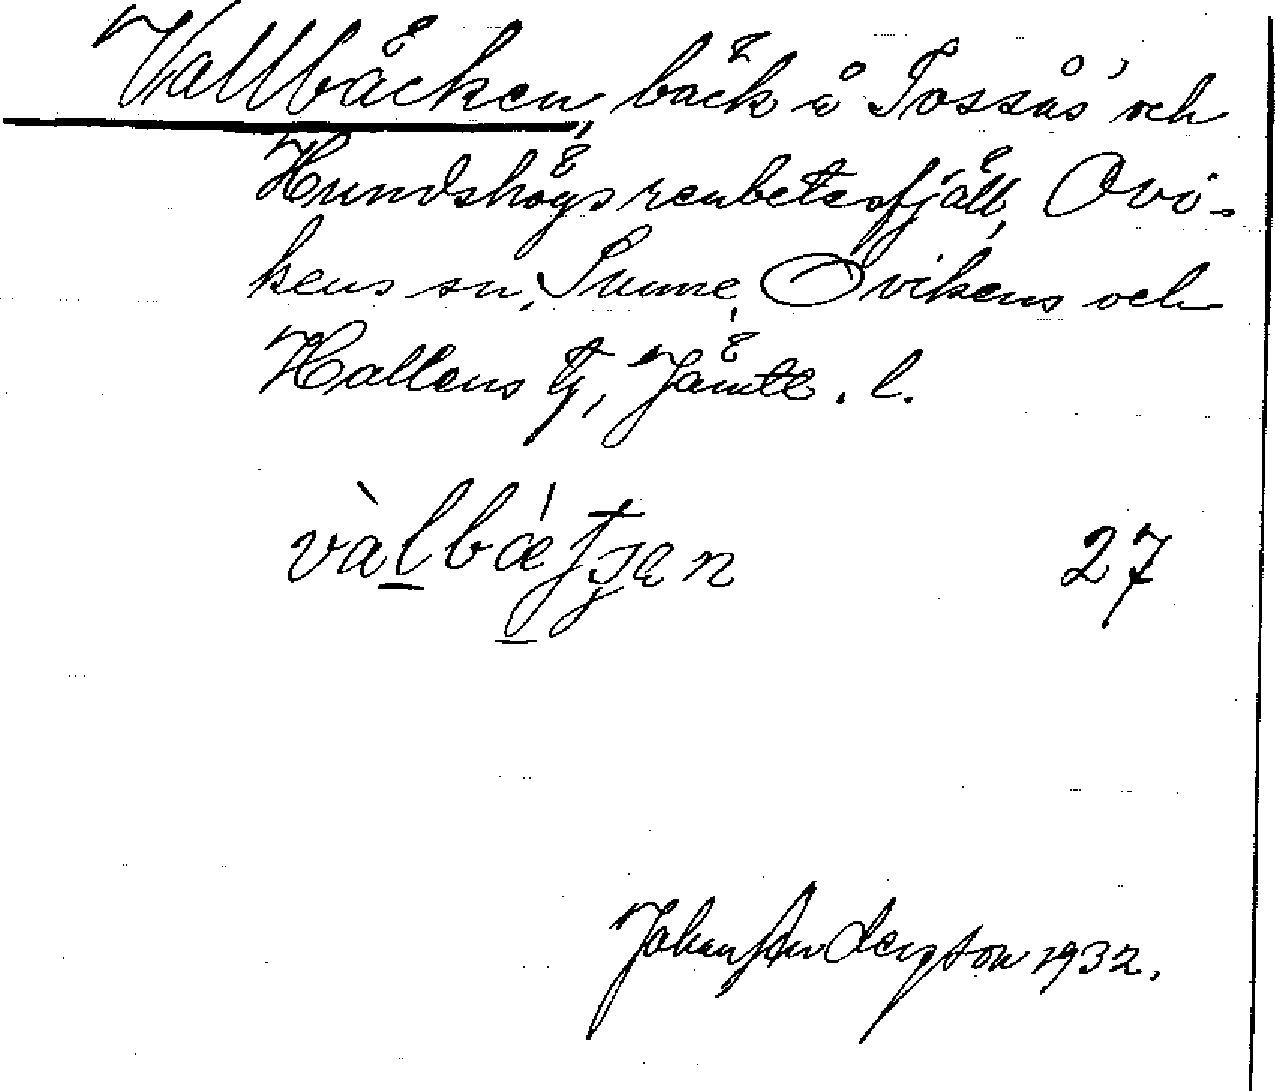 Vallbäcken, bäck å Tossås' och
Hundshögs renbetesfjäll, Ovi-
kens sn, Sunne, Ovikens och
Hallens tg, Jämtl. l.
vàlbǽtʃen 27
Johan Anderzson 1932.